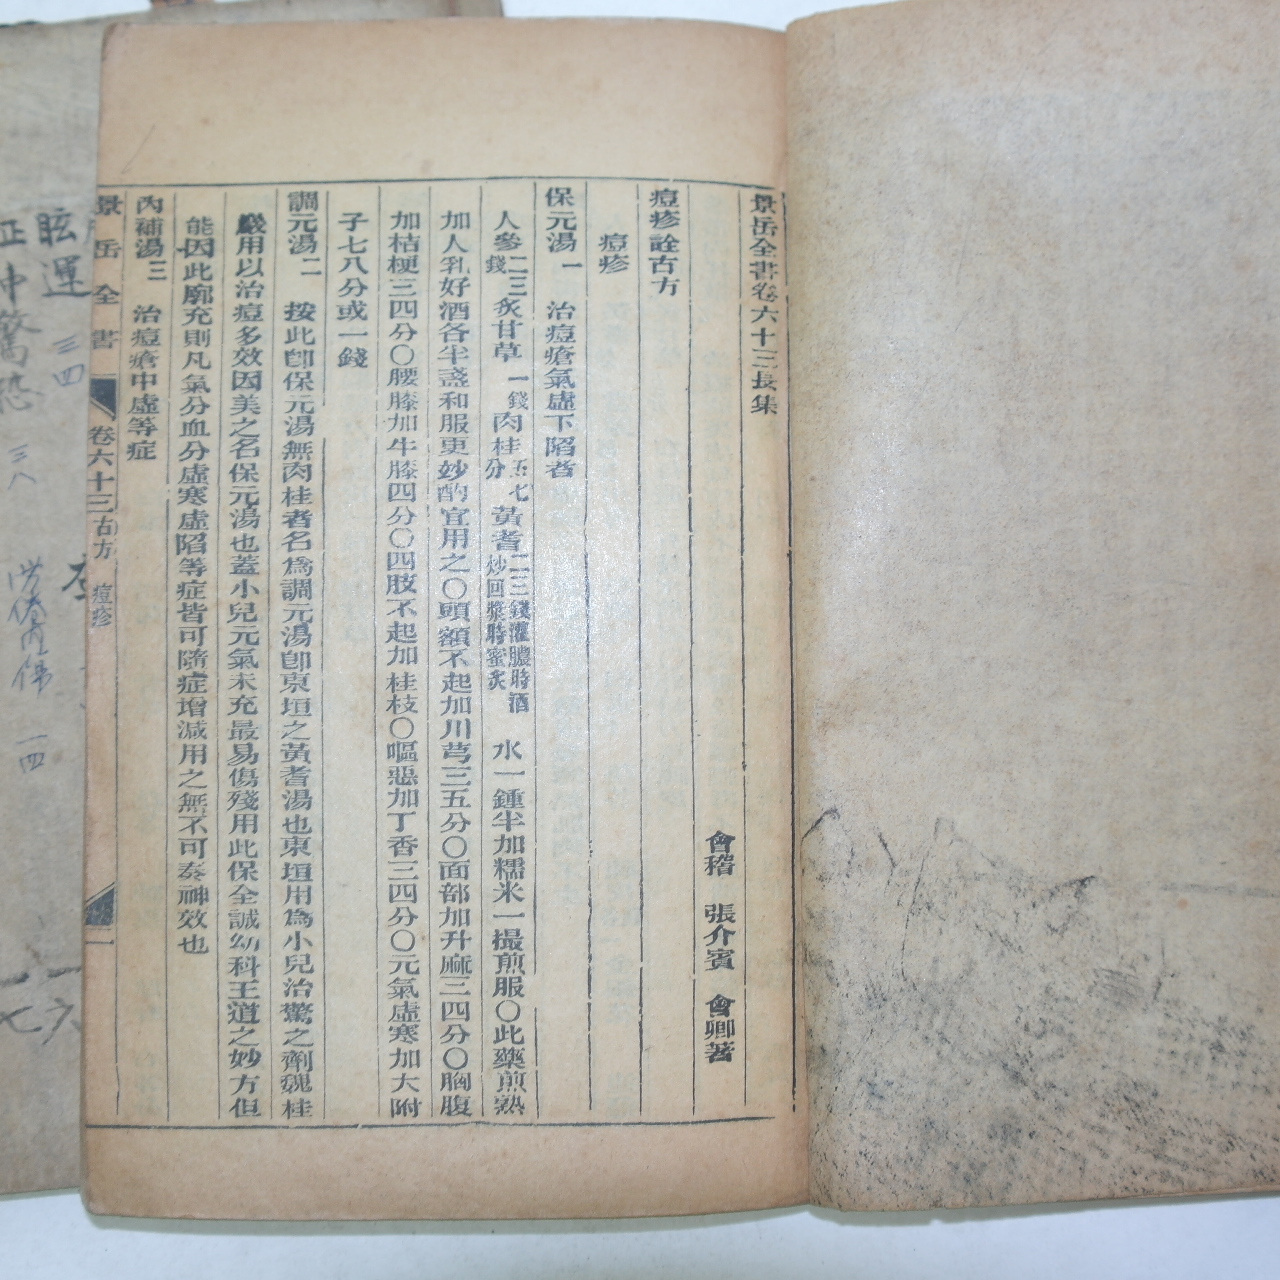 景岳全書卷六十三長集
會稽　張介賓　會卿著
痘疹詮古方
痘疹
保元湯一　治痘瘡氣虛下陷者
人參二三錢炙甘草一錢肉桂五七分黃耆二三錢灌膿時酒炒回漿時蜜炙　水一鍾半加糯米一撮煎服○此藥煎熟
加人乳好酒各半盞和服更妙酌宜用之○頭額不起加川芎三五分○面部加升麻三四分○胸腹
加桔梗三四分○腰膝加牛膝四分○四肢不起加桂枝○嘔惡加丁香三四分○元氣虛寒加大附
子七八分或一錢
調元湯二　按此卽保元湯無肉桂者名爲調元湯卽東垣之黃耆湯也東垣用爲小兒治驚之劑魏桂
巖用以治痘多效因美之名保元湯也蓋小兒元氣未充最易傷殘用此保全誠幼科王道之妙方但
能因此廓充則凡氣分血分虛寒虛陷等症皆可隨症增減用之無不可奏神效也
內補湯三　治痘瘡中虛等症
景岳全書　卷六十三古方　痘疹　一
眩運　三四
怔忡驚恐　三八
一六
一七